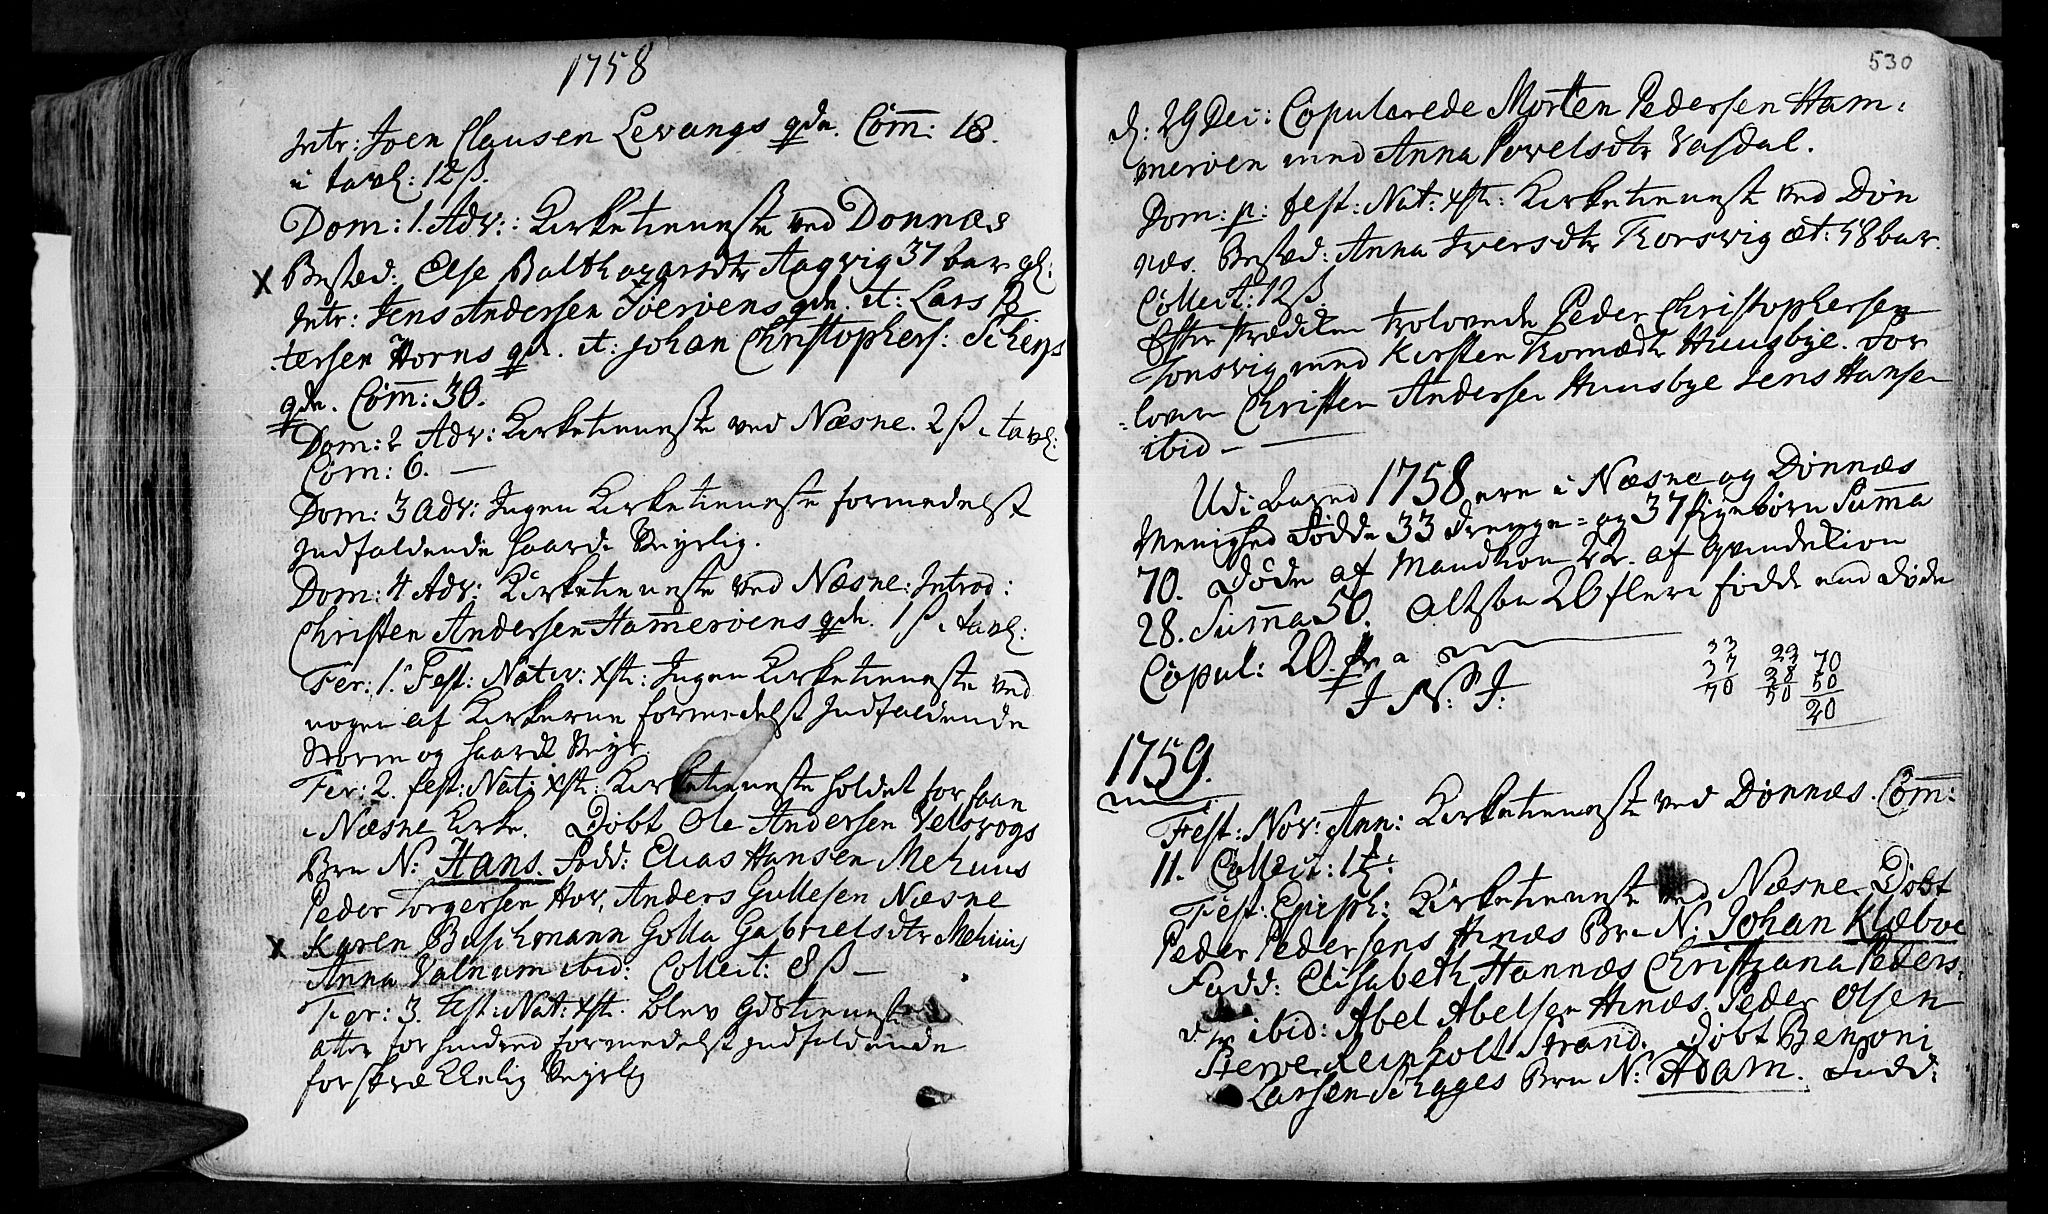 1758
Intr: Joen Clausen Levangs qde. Com̄: 18.
i tavl: 12 ß.
Dom: 1. Adv: Kirketieneste ved Dønnæs
X Bested: Else Balthazarsdtr Aagvig 37 bar gl:
Intr: Jens Andersen Søeröens qde. it: Lars Pe
tersen Horns qde. it: Johan Christophers:
qde. Com̄: 30.
Dom: 2 Adv: Kirketieneste ved Næsne. 2 ß i tavl:
Com: 6. —
Dom: 3 Adv: Ingen Kirketieneste formedelst
Indfaldende haard Veyrlig.
Dom: 4 Adv: Kirketieneste ved Næsne: Introd:
Christen Andersen Ham̄eröens qde. 1 ß i tavl:
Fer: 1. Fest: Nativ: Xsti: Ingen Kirketieneste ved
nogen af Kirkerne formedelst Indfaldende
Storm og haard Veyr.
Fer: 2. fest: Nat: Xsti: Kirketieneste holdet for faae
i Næsne Kirke. Døbt Ole Andersen Velsvogs
Brn N: Hans. Fadd: Elias Hansen Mehuus
Peder Torgersen Hov, Anders Gullesen Næsne
X Karen Buschmann Golla Gabrielsdtr Mehuus
Anna Valnum ibid: Collect: 8 ß —
Fer: 3. Fest: Nat: Xsti. blev Gdstieneste
atter forhindred formedelst Indfaldende
forskrækkelig Veyrlig
530
d: 29 Dec: Copulerede Morten Pedersen Ham:
meröen med Anna Povelsdtr Vasdal.
Dom: p: fest: Nat: Xsti: Kirketieneste ved Døn
næs. Bested: Anna Iversdtr Korsvig æt: 58 bar.
Collect: 12 ß.
Efter Prædiken trolovede Peder Christophersen
Tonsvig med Kirsten Tomædtr Huusbye. For
=lover Christen Andersen Huusbye Jens Hansen
ibid —
Udi Aared 1758 ere i Næsne og Dönnæs
Menighed Fødde 33 Drenge= og 37 Pigebørn Sum̄a
70. Døde af Mandkion 22. af Qvindekion
28. Sum̄a 50. Altsaa 20 flere fødde end døde
Copul: 20. Par
33 22 70
37 28 50
70 50 20
I N: J:
1759.
Fest: Nov: Ann: Kirketieneste ved Dønnæs. Com̄:
11. Collect: 1
Fest: Epiph: Kirketieneste ved Næsne. Døbt
Peder Pedersens Hinæs Brn N: Johan Klæboe
Fadd: Elisabeth Hannæs Christiana Peders
dtr ibid: Abel Abelsen Hinæs. Peder Olsen
Reinholt Strand. Døbt Benjoni
Larsen Brn N: Adam. Fadd: